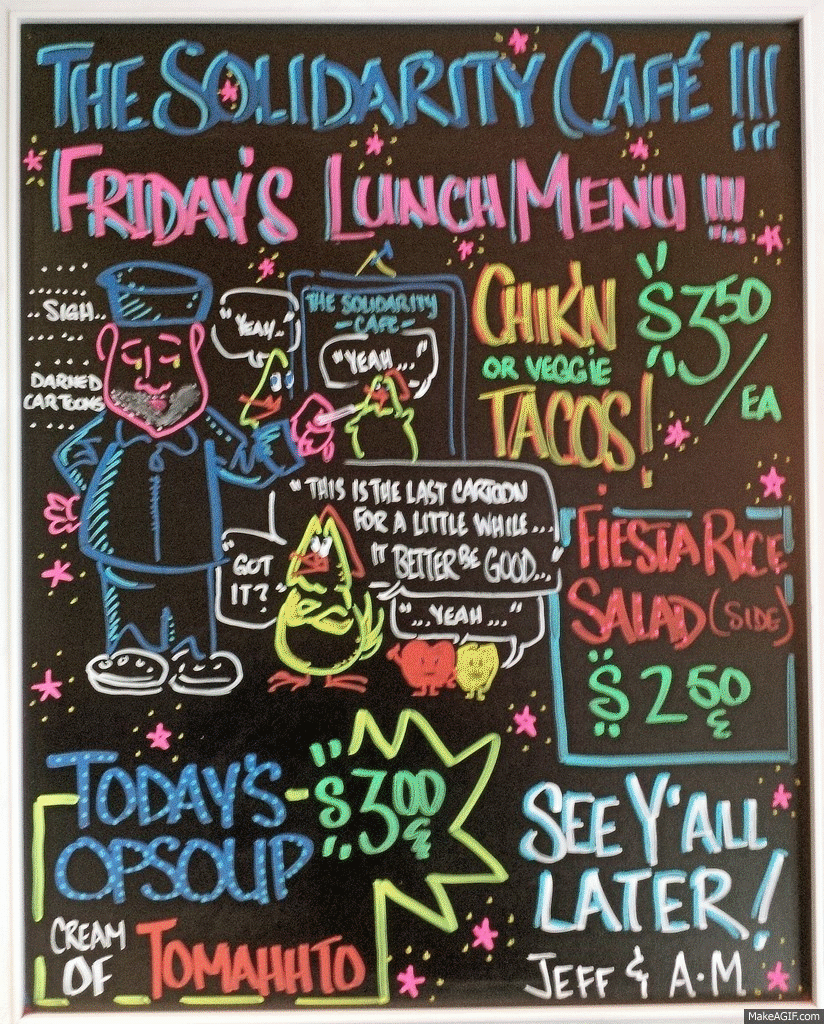 THE SOLIDARITY CAFÉ !!!
FRIDAY'S LUNCH MENU !!!
....
.....
..SIGH..
.....
DARNED
CARTOONS
....
"YEAH.."
THE SOLIDARITY
-CAFE-
"YEAH..."
CHIK'N
OR VEGGIE
TACOS!
$3.50/EA
"THIS IS THE LAST CARTOON
FOR A LITTLE WHILE...
IT BETTER BE GOOD...
"GOT
IT?"
"...YEAH..."
FIESTA RICE
SALAD (SIDE)
$2.50¢
TODAY'S - $3.00¢
OPSOUP
CREAM
OF TOMAHHTO
SEE Y'ALL
LATER!
JEFF & A.M
MakeAGIF.com